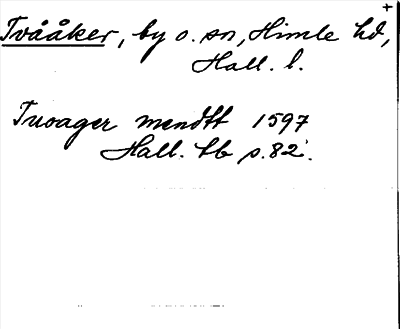 +
Tvååker, by o. sn, Himle hd,
Hall. l.
Tuoager mendtt 1597
Hall. tb s. 82.